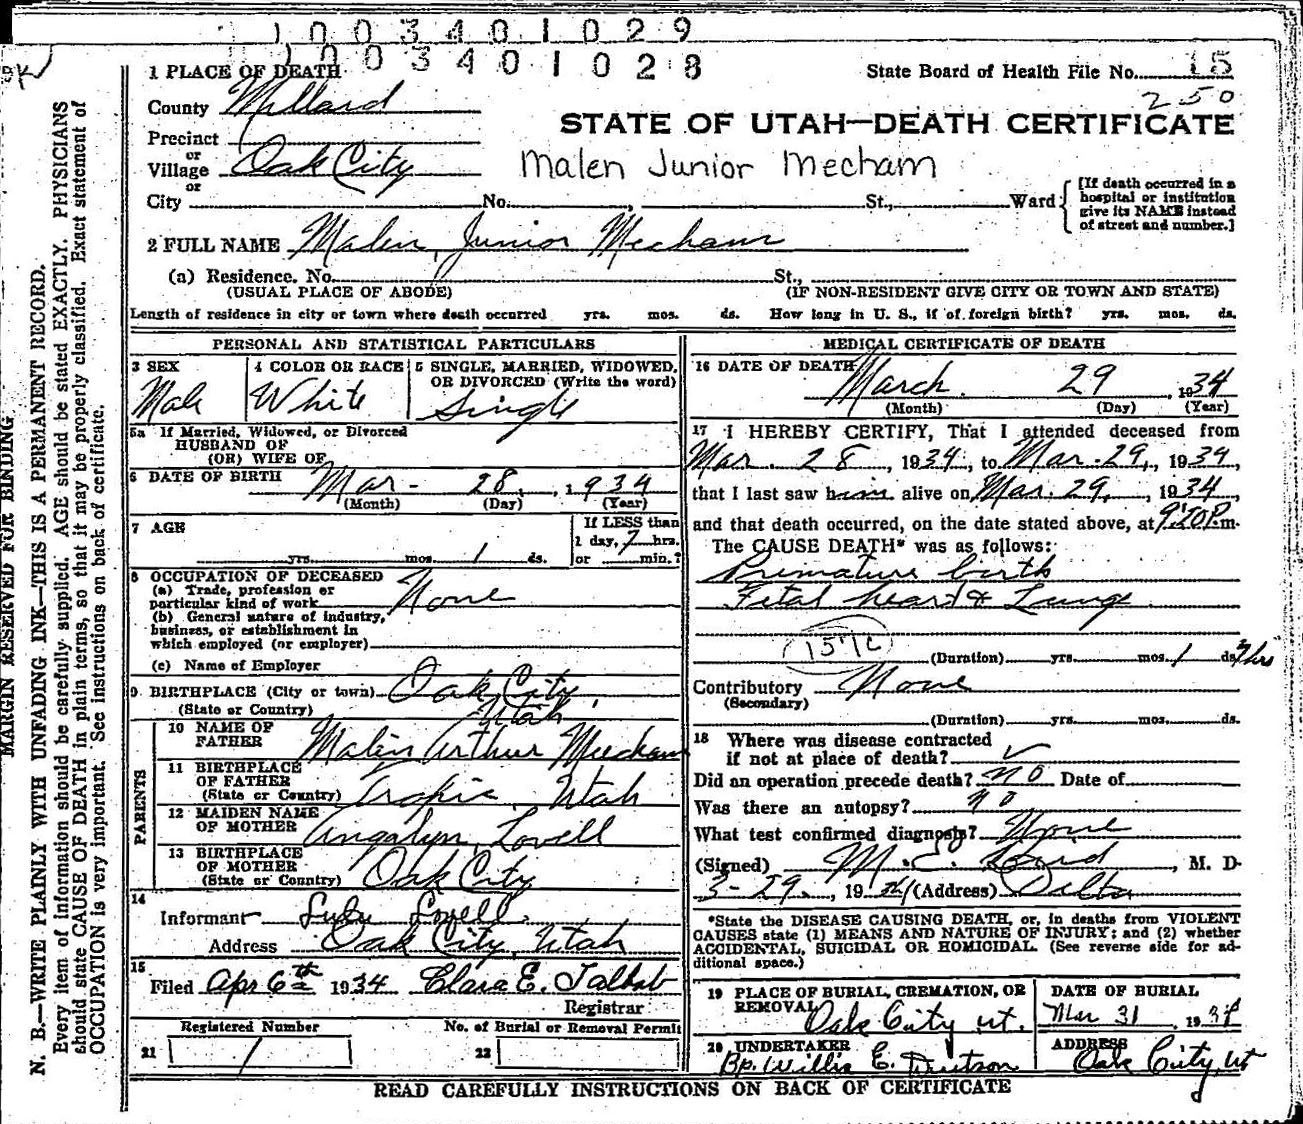 1003401029
1003401028
1 PLACE OF DEATH
State Board of Health File No. 15
250
County Millard
STATE OF UTAH—DEATH CERTIFICATE
Precinct
or
Village Oak City
Malen Junior Mecham
or
City No. , St., Ward
[If death occurred in a
hospital or institution
give its NAME instead
of street and number.]
2 FULL NAME Malen Junior Mecham
(a) Residence. No. St.,
(USUAL PLACE OF ABODE) (IF NON-RESIDENT GIVE CITY OR TOWN AND STATE)
Length of residence in city or town where death occurred yrs. mos. ds. How long in U. S., if of foreign birth? yrs. mos. ds.
PERSONAL AND STATISTICAL PARTICULARS
3 SEX
Male
4 COLOR OR RACE
White
5 SINGLE, MARRIED, WIDOWED,
OR DIVORCED (Write the word)
Single
5a If Married, Widowed, or Divorced
HUSBAND OF
(OR) WIFE OF
6 DATE OF BIRTH Mar- 28, 1934
(Month) (Day) (Year)
7 AGE
yrs. mos. 1 ds.
If LESS than
1 day, 7 hrs.
or min.?
8 OCCUPATION OF DECEASED
(a) Trade, profession or
particular kind of work None
(b) General nature of industry,
business, or establishment in
which employed (or employer)
(c) Name of Employer
9. BIRTHPLACE (City or town) Oak City,
(State or Country) Utah
PARENTS
10 NAME OF
FATHER Malen Arthur Mecham
11 BIRTHPLACE
OF FATHER
(State or Country) Tropic, Utah
12 MAIDEN NAME
OF MOTHER Angalyn Lovell
13 BIRTHPLACE
OF MOTHER
(State or Country) Oak City
14
Informant Lovell
Address Oak City, Utah
15
Filed Apr 6th 1934 Clara E. Talbot
Registrar
Registered Number
21 1
No. of Burial or Removal Permit
22
MEDICAL CERTIFICATE OF DEATH
16 DATE OF DEATH March 29, 1934
(Month) (Day) (Year)
17 I HEREBY CERTIFY, That I attended deceased from
Mar. 28, 1934, to Mar. 29, 1934,
that I last saw him alive on Mar. 29, 1934,
and that death occurred, on the date stated above, at P.m.
The CAUSE DEATH* was as follows:
Premature birth
Fetal heart & Lungs
(Duration) yrs. mos. 1 ds. 7 hrs
Contributory None
(Secondary)
(Duration) yrs. mos. ds.
18 Where was disease contracted
if not at place of death?
Did an operation precede death? No Date of
Was there an autopsy? no
What test confirmed diagnosis? None
(Signed) M. E. Bird, M. D.
3-29, 1934 (Address) Delta
*State the DISEASE CAUSING DEATH, or, in deaths from VIOLENT
CAUSES state (1) MEANS AND NATURE OF INJURY; and (2) whether
ACCIDENTAL, SUICIDAL OR HOMICIDAL. (See reverse side for ad-
ditional space.)
19 PLACE OF BURIAL, CREMATION, OR
REMOVAL Oak City Ut.
DATE OF BURIAL
Mar 31, 1934
20 UNDERTAKER
Bp. Willis E. Dutson
ADDRESS
Oak City, Ut
READ CAREFULLY INSTRUCTIONS ON BACK OF CERTIFICATE
MARGIN RESERVED FOR BINDING
N. B.—WRITE PLAINLY WITH UNFADING INK—THIS IS A PERMANENT RECORD.
Every item of information should be carefully supplied. AGE should be stated EXACTLY. PHYSICIANS
should state CAUSE OF DEATH in plain terms, so that it may be properly classified. Exact statement of
OCCUPATION is very important. See instructions on back of certificate.